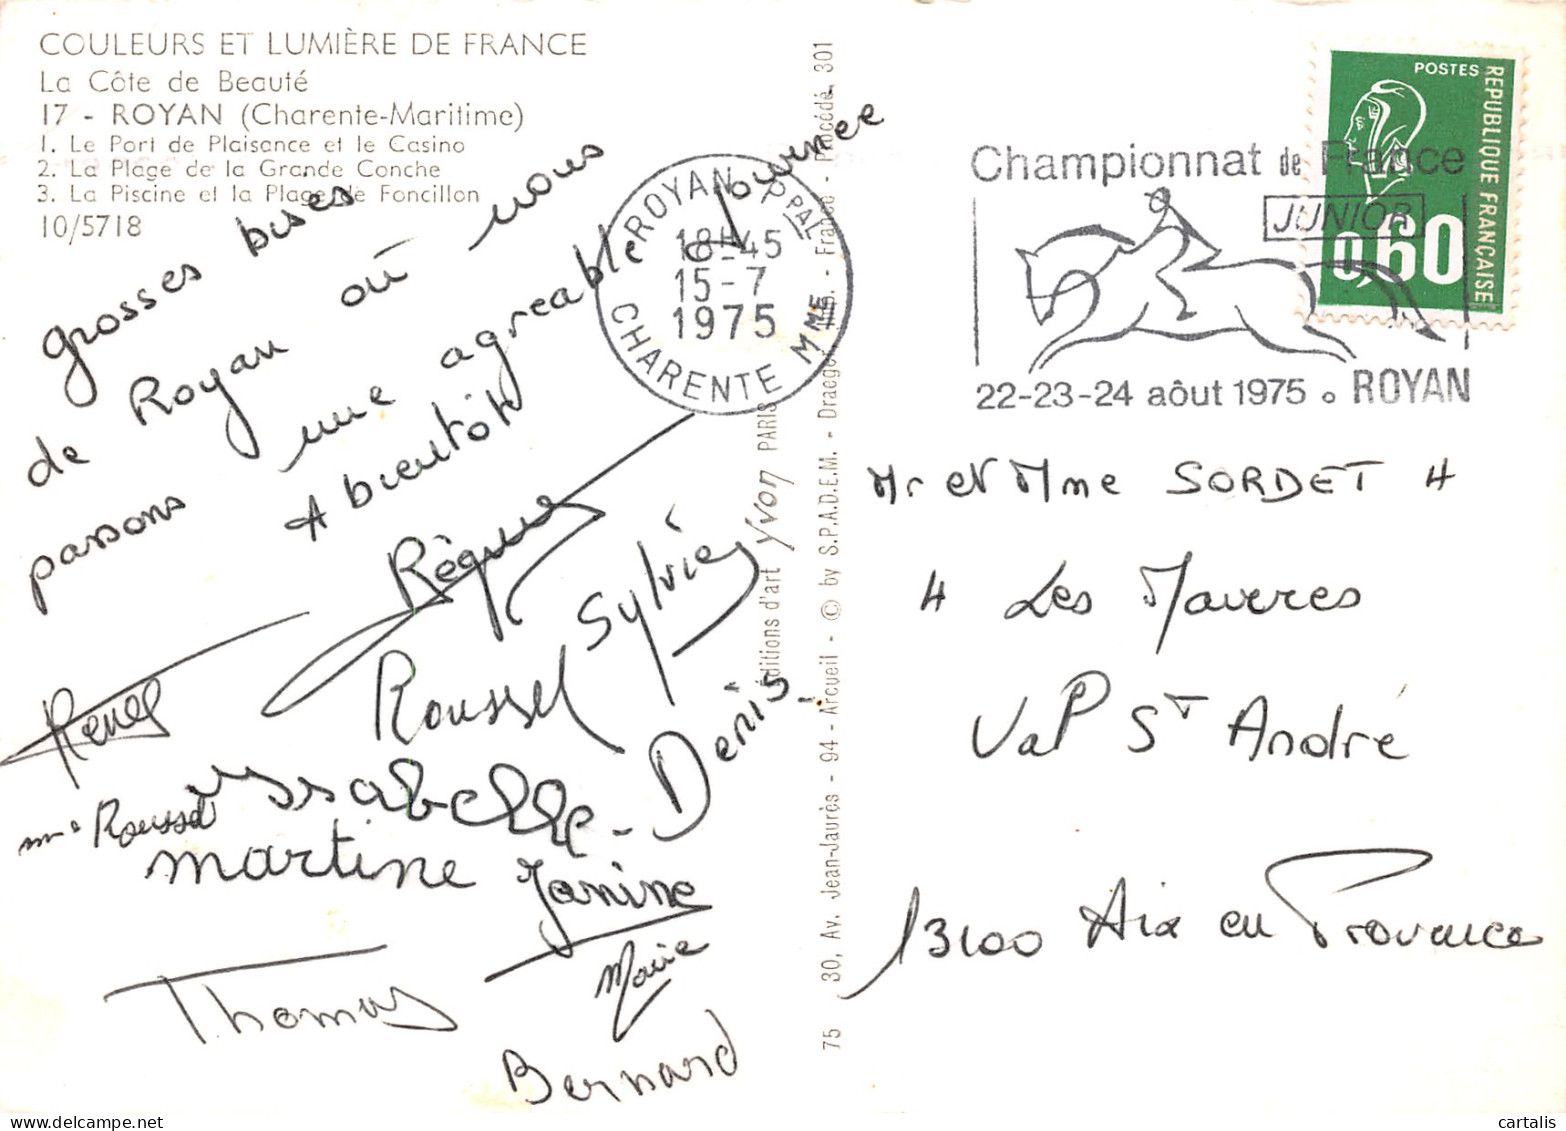 COULEURS ET LUMIÈRE DE FRANCE
La Côte de Beauté
17 - ROYAN (Charente-Maritime)
1. Le Port de Plaisance et le Casino
2. La Plage de la Grande Conche
3. La Piscine et la Plage de Foncillon
10/5718
grosses bises
de Royan où nous
passons une agreable journee
A bientôt
Règnes
Sylvie
René
Roussel
Denis
Isabelle
mme Roussel
martine
Janine
Marie
Thomas
Bernard
Éditions d'art Yvon PARIS
75 30, Av. Jean-Jaurès - 94 - Arcueil - © by S.P.A.D.E.M. - Draeger Imp. - France - Procédé 301
ROYAN PPAL
18H45
15-7
1975
CHARENTE MME
POSTES
REPUBLIQUE FRANÇAISE
0,60
Championnat de France
JUNIOR
22-23-24 aôut 1975 o ROYAN
Mr et Mme SORDET "
" Les
Val St André
13100 Aix en Provence
cartalis